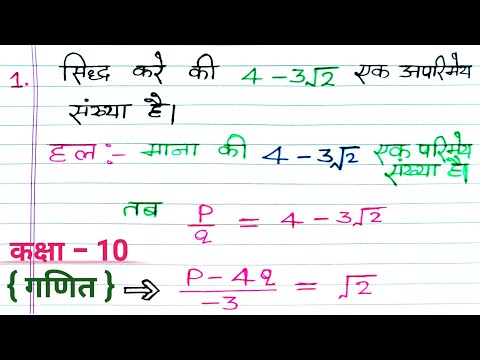 1. सिध्द करे की 4 – 3√2 एक अपरिमेय
संख्या है।
हल :- माना की 4 – 3√2 एक परिमेय
संख्या है।
तब P/q = 4 – 3√2
कक्षा – 10
{ गणित } ⇒ P – 4q/–3 = √2